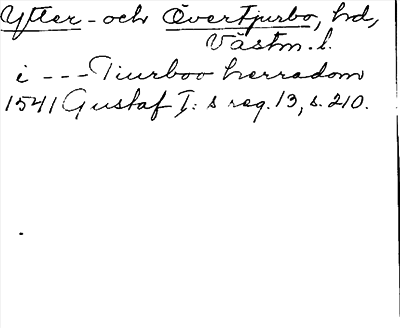 Ytter- och Övertjurbo, hd,
Västm. l.
i --- Tiurboo herradom
1541 Gustaf I: s reg. 13, s. 210.